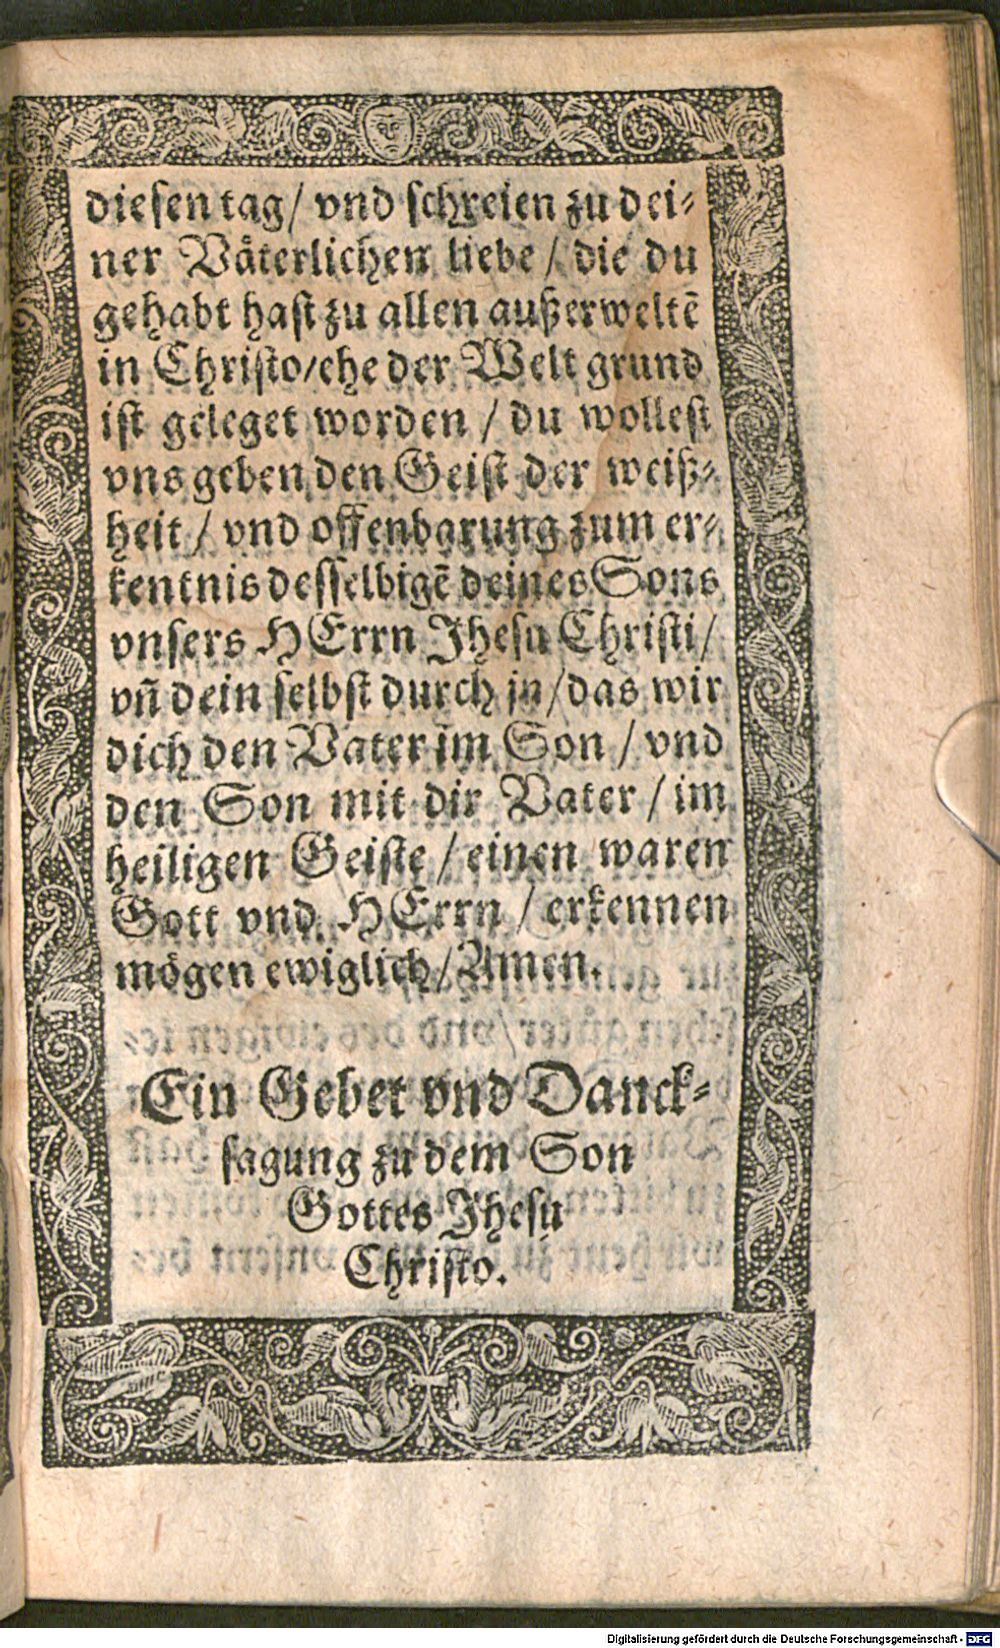 diesen tag/ vnd schreien zu dei⸗
ner Väterlichen liebe / die du
gehabt hast zu allen außerweltē
in Christo/ehe der Welt grund
ist geleget worden / du wollest
vns geben den Geist der weiß⸗
heit / vnd offenbarung zum er⸗
kentnis desselbigē deines Sons
vnsers HErrn Jhesu Christi/
vñ dein selbst durch jn/das wir
dich den Vater im Son / vnd
den Son mit dir Vater / im
heiligen Geiste / einen waren
Gott vnd HErrn / erkennen
mögen ewiglich/Amen.
Ein Gebet vnd Danck⸗
sagung zu dem Son
Gottes Jhesu
Christo.
Digitalisierung gefördert durch die Deutsche Forschungsgemeinschaft - DFG